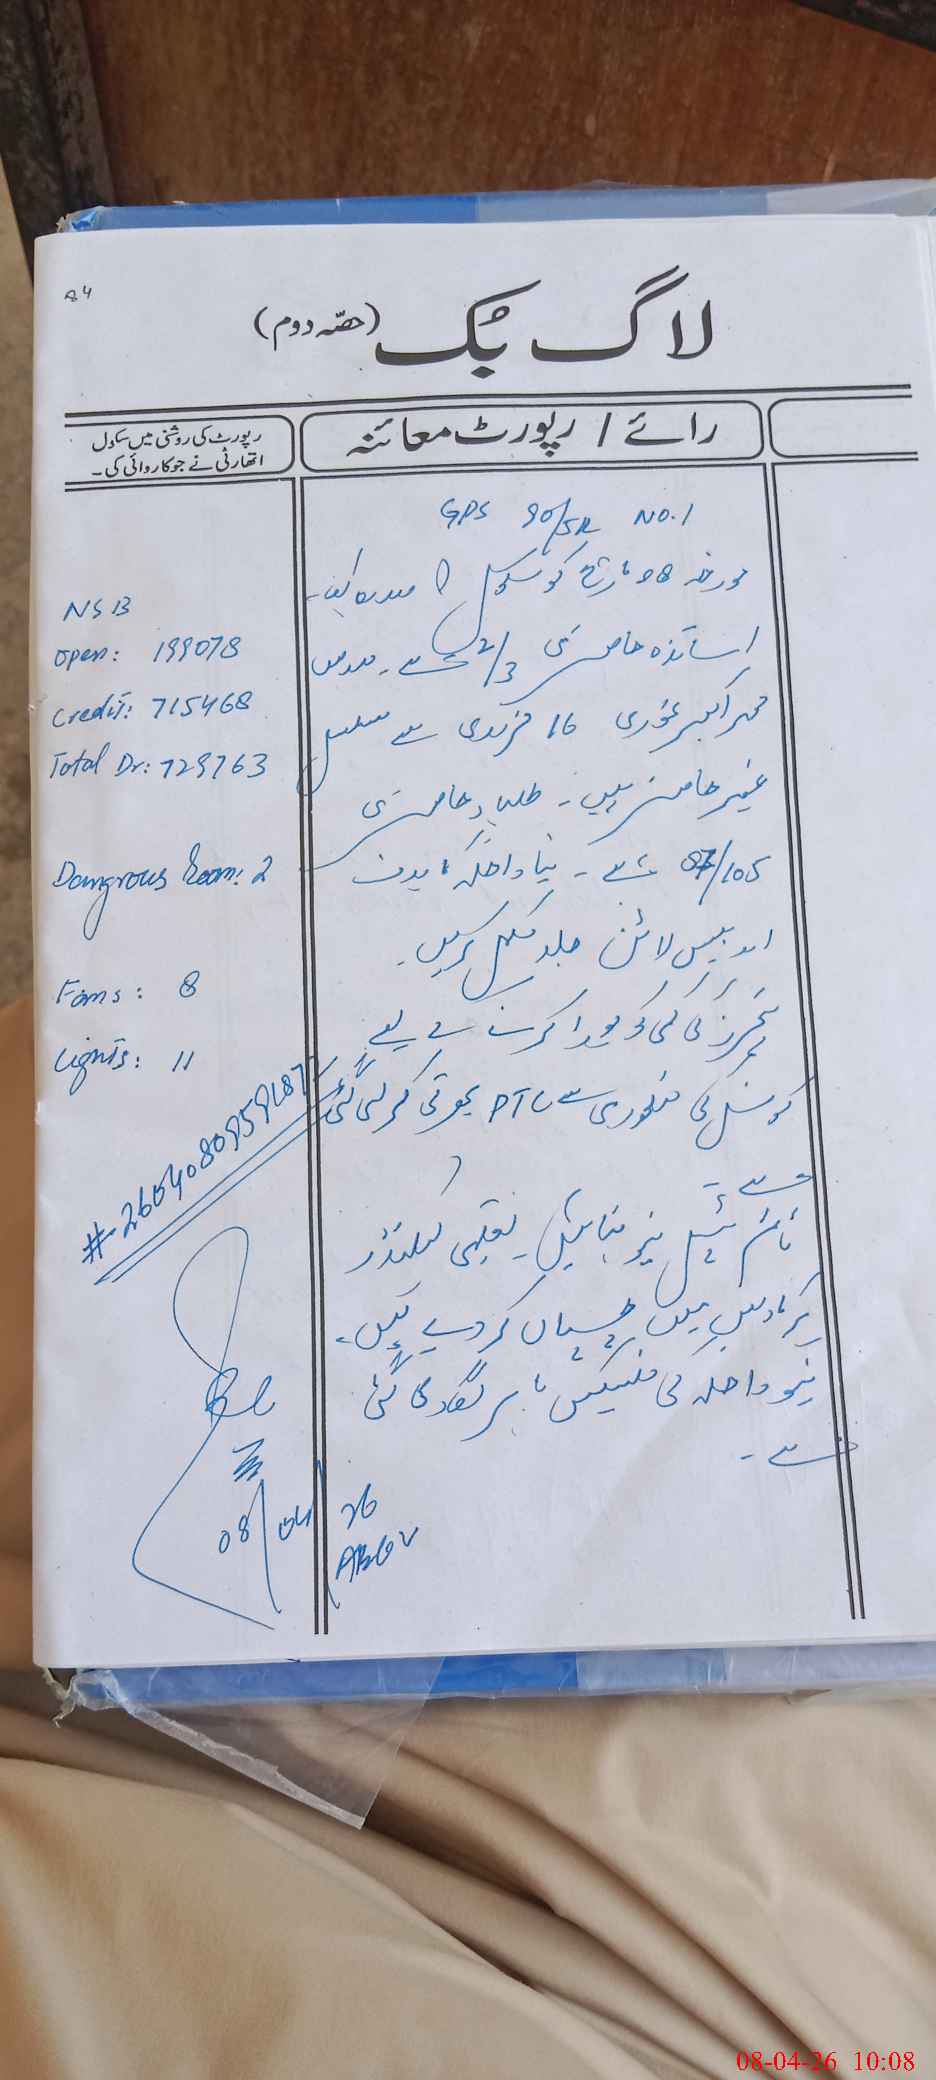 84
لاگ بُک (حصّہ دوم)
رائے / رپورٹ معائنہ
رپورٹ کی روشنی میں سکول
اتھارٹی نے جو کاروائی کی۔
GPS 90/5R NO.1
مورخہ 08 کو سکول کا
اساتذہ حاضری 2/3 ہے۔ مدرس
محمد اکبر غوری 16 فروری سے مسلسل
غیر حاضر ہیں۔ طلباء حاضری
87/105 ہے۔ نیا داخلہ کا ہدف
اور بیس لائن جلد مکمل کریں۔
ٹیچرز کی کمی کو پورا کرنے کے لیے
کونسل کی منظوری سے PTC بھرتی کر لی گئی
ہے۔
ٹائم ٹیبل نیو بنائیں۔ تعلیمی کیلنڈر
کلاسز میں چسپاں کر دیے گئے ہیں۔
نیو داخلہ کی فلیکس باہر لگا دی گئی
ہے۔
NSB
Open: 199078
Credit: 715468
Total Dr: 729763
Dangrous Room: 2
Fans: 8
Lights: 11
08/04/26
08-04-26 10:08